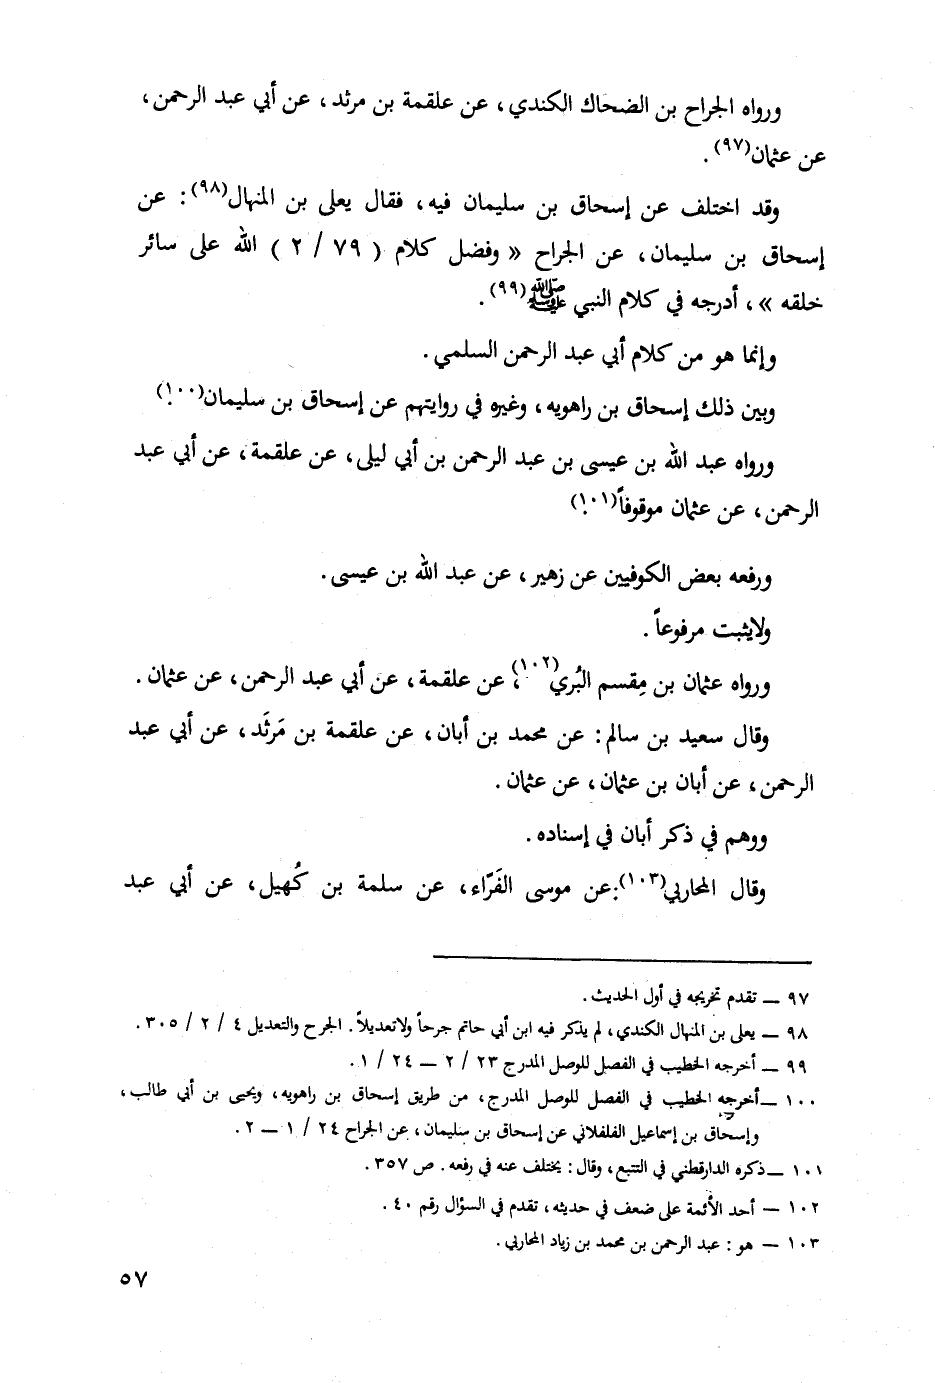 ورواه الجراح بن الضحاك الكندي، عن علقمة بن مرثد، عن أبي عبد الرحمن،
عن عثمان(٩٧).
وقد اختلف عن إسحاق بن سليمان فيه، فقال يعلى بن المنهال(٩٨): عن
إسحاق بن سليمان، عن الجراح « وفضل كلام ( ٧٩ / ٢ ) الله على سائر
خلقه »، أدرجه في كلام النبي ﷺ(٩٩).
وإنما هو من كلام أبي عبد الرحمن السلمي.
وبين ذلك إسحاق بن راهويه، وغيره في روايتهم عن إسحاق بن سليمان(١٠٠).
ورواه عبد الله بن عيسى بن عبد الرحمن بن أبي ليلى، عن علقمة، عن أبي عبد
الرحمن، عن عثمان موقوفاً(١٠١).
ورفعه بعض الكوفيين عن زهير، عن عبد الله بن عيسى.
ولايثبت مرفوعاً.
ورواه عثمان بن مِقسم البُري(١٠٢)، عن علقمة، عن أبي عبد الرحمن، عن عثمان.
وقال سعيد بن سالم: عن محمد بن أبان، عن علقمة بن مَرثَد، عن أبي عبد
الرحمن، عن أبان بن عثمان، عن عثمان.
ووهم في ذكر أبان في إسناده.
وقال المحاربي(١٠٣): عن موسى الفَرّاء، عن سلمة بن كُهيل، عن أبي عبد
٩٧ ــ تقدم تخريجه في أول الحديث.
٩٨ ــ يعلى بن المنهال الكندي، لم يذكر فيه ابن أبي حاتم جرحاً ولاتعديلاً. الجرح والتعديل ٤ / ٢ / ٣٠٥.
٩٩ ــ أخرجه الخطيب في الفصل للوصل المدرج ٢٣ / ٢ ــ ٢٤ / ١.
١٠٠ ــ أخرجه الخطيب في الفصل للوصل المدرج، من طريق إسحاق بن راهويه، ويحيى بن أبي طالب،
وإسحاق بن إسماعيل الفلفلاني عن إسحاق بن سليمان، عن الجراح ٢٤ / ١ ــ ٢.
١٠١ ــ ذكره الدارقطني في التتبع، وقال: يختلف عنه في رفعه. ص ٣٥٧.
١٠٢ ــ أحد الأئمة على ضعف في حديثه، تقدم في السؤال رقم ٤٠.
١٠٣ ــ هو: عبد الرحمن بن محمد بن زياد المحاربي.
٥٧